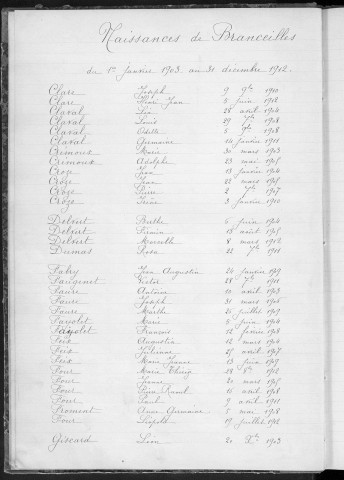 Naissances de Branceilles
du 1er Janvier 1903 au 31 décembre 1912.
Clare Joseph 9 9bre 1910
Clare Jean 8 juin 1912
Claval Léa 28 avril 1904
Claval Louis 29 7bre 1908
Claval Odette 8 9bre 1908
Claval Germaine 14 janvier 1911
Crémoux Marie 30 mars 1903
Crémoux Adolphe 23 mai 1905
Croze Jean 13 janvier 1904
Croze Jean 22 mars 1905
Croze Pierre 2 7bre 1907
Croze Irène 3 janvier 1910
Delbert Berthe 4 juin 1904
Delbert Firmin 18 août 1905
Delbert 8 mars 1912
Dumas Rosa 22 7bre 1911
Fabry Jean Augustin 24 janvier 1909
Faugenet Victor 28 7bre 1911
Faure Antoine 10 avril 1903
Faure Joseph 31 mars 1905
Faure Marthe 25 juillet 1909
Fayolet Marie 4 juin 1904
Fayolet François 12 février 1908
Feix Augustin 12 mars 1904
Feix Julienne 27 avril 1907
Feix Marie Jeanne 13 juin 1909
Four Marie 28 8bre 1912
Four 20 mars 1905
Four 10 avril 1908
Four Paul 9 avril 1911
Froment Anne Germaine 5 mai 1908
Four Léopold 19 juillet 1912
Giscard Léon 20 Xbre 1903